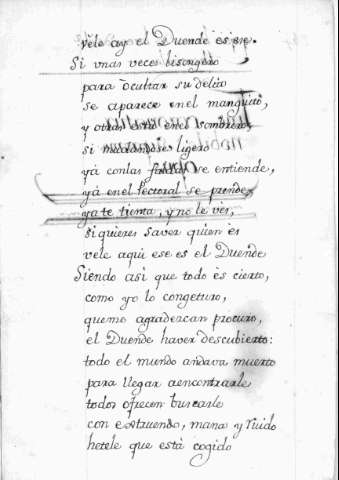 vele ay el Duende es ese.
Si vnas veces lisongero
para ocultar su delito
se aparece enel manguito,
y otras està enel sombrero,
si mudandose ligero
yà conlas faldas se entiende,
yà enel Pectoral se prende,
ya te tienta, y no le ves,
si quieres saver quien es
vele aqui ese es el Duende
Siendo asi que todo ès cierto,
como yo lo congeturo,
quemo agradezcan procuro,
el Duende haver descubierto:
todo el mundo andava muerto
para llegar aencontrarle
todos ofrecen buscarle
con estruendo, mana y ruido
hetele que està cogido